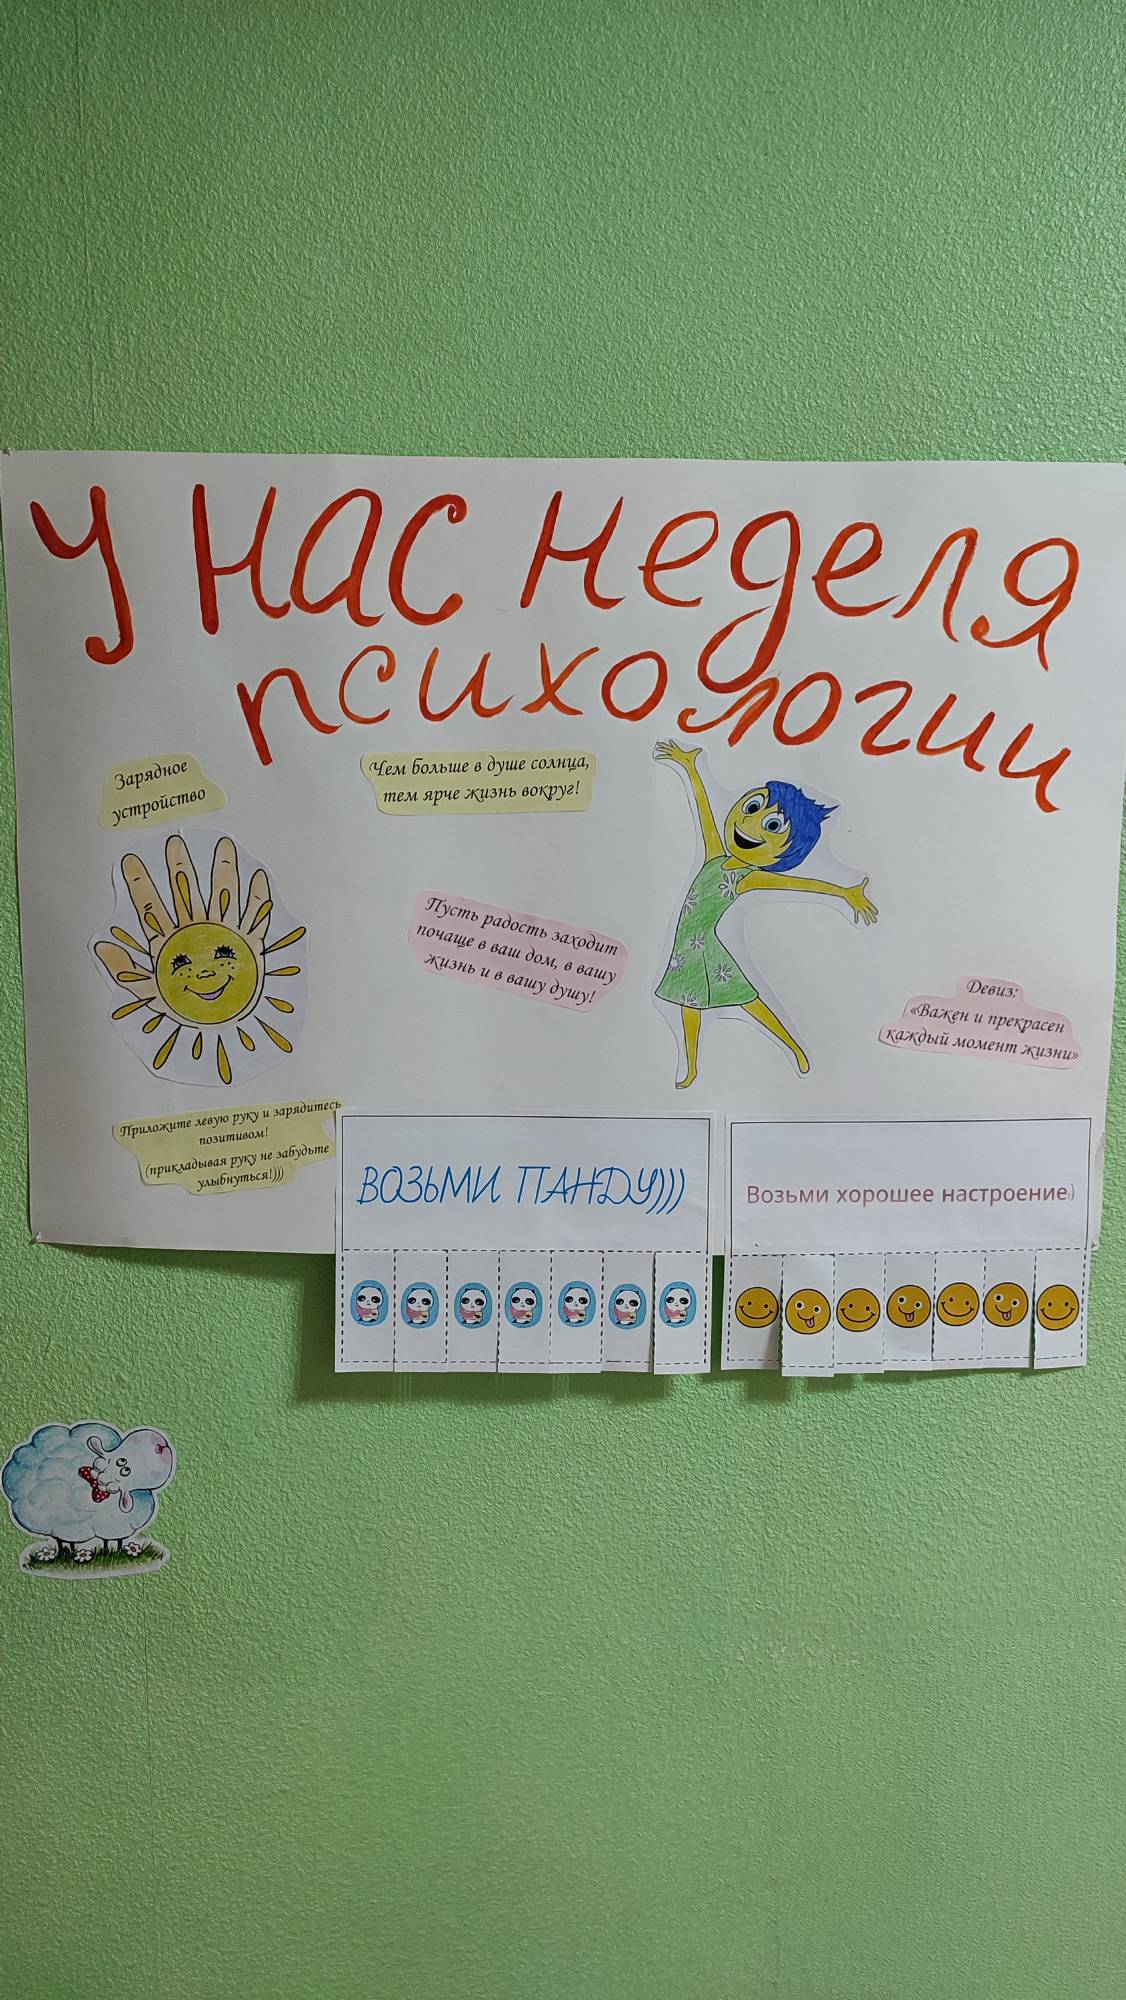 У нас неделя
психологии
Зарядное
устройство
Чем больше в душе солнца,
тем ярче жизнь вокруг!
Пусть радость заходит
почаще в ваш дом, в вашу
жизнь и в вашу душу!
Девиз:
«Важен и прекрасен
каждый момент жизни»
Приложите левую руку и зарядитесь
позитивом!
(прикладывая руку не забудьте
улыбнуться!)))
ВОЗЬМИ ПАНДУ)))
Возьми хорошее настроение:)